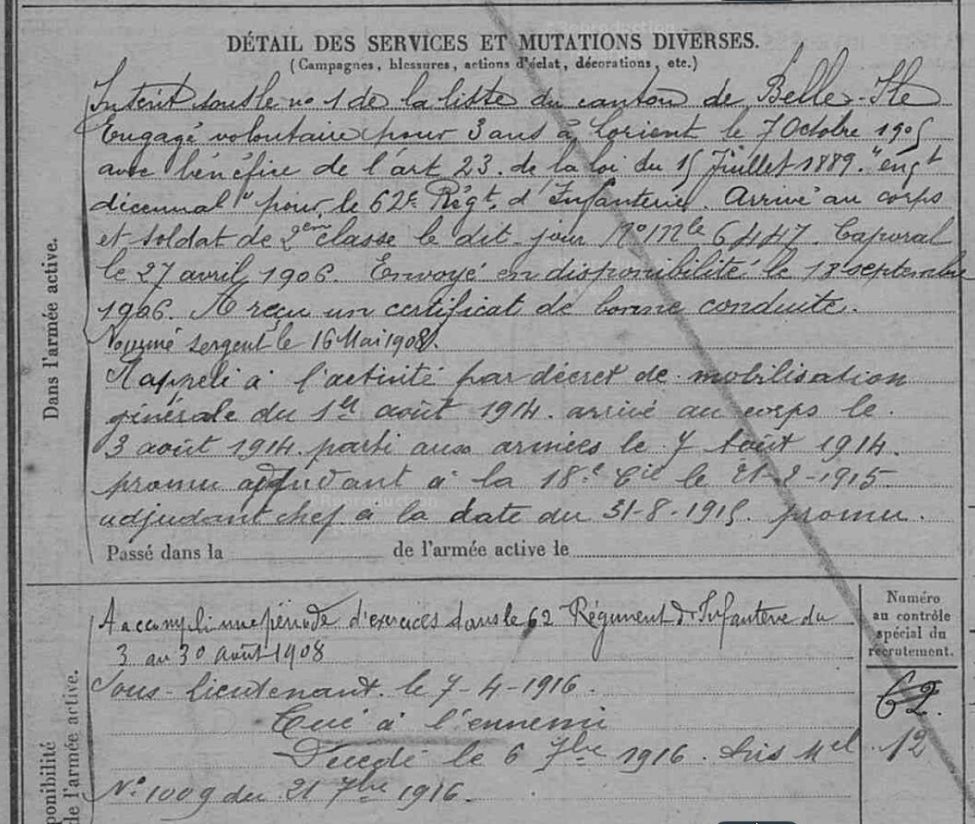 DÉTAIL DES SERVICES ET MUTATIONS DIVERSES.
(Campagnes, blessures, actions d'éclat, décorations, etc.)
Inscrit sous le no 1 de la liste du canton de Belle-Ile
Engagé volontaire pour 3 ans à Lorient le 7 Octobre 1905
avec bénéfice de l'art 23. de la loi du 15 Juillet 1889. "engt
décennal" pour le 62e Régt. d'Infanterie. Arrivé au corps
et soldat de 2eme classe le dit jour No Mle 6447. Caporal
le 27 avril 1906. Envoyé en disponibilité le 18 septembre
1906. A reçu un certificat de bonne conduite.
Nommé sergent le 16 Mai 1908.
Rappelé à l'activité par décret de mobilisation
générale du 1er août 1914. arrivé au corps le.
3 août 1914. parti aux armées le 7 Août 1914.
promu adjudant à la 18e Cie le 21-2-1915
adjudant chef à la date du 31-8-1915. promu.
Passé dans la de l'armée active le
Dans l'armée active.
A accompli une période d'exercices dans le 62 Régiment d'Infanterie du
3 au 30 août 1908
Sous-lieutenant. le 7-4-1916.
Tué à l'ennemi
Décédé le 6 7bre 1916. Avis Mel
No. 1009 du 21 7bre 1916.
ponibilité
de l'armée active.
Numéro
au contrôle
spécial du
recrutement.
62.
12